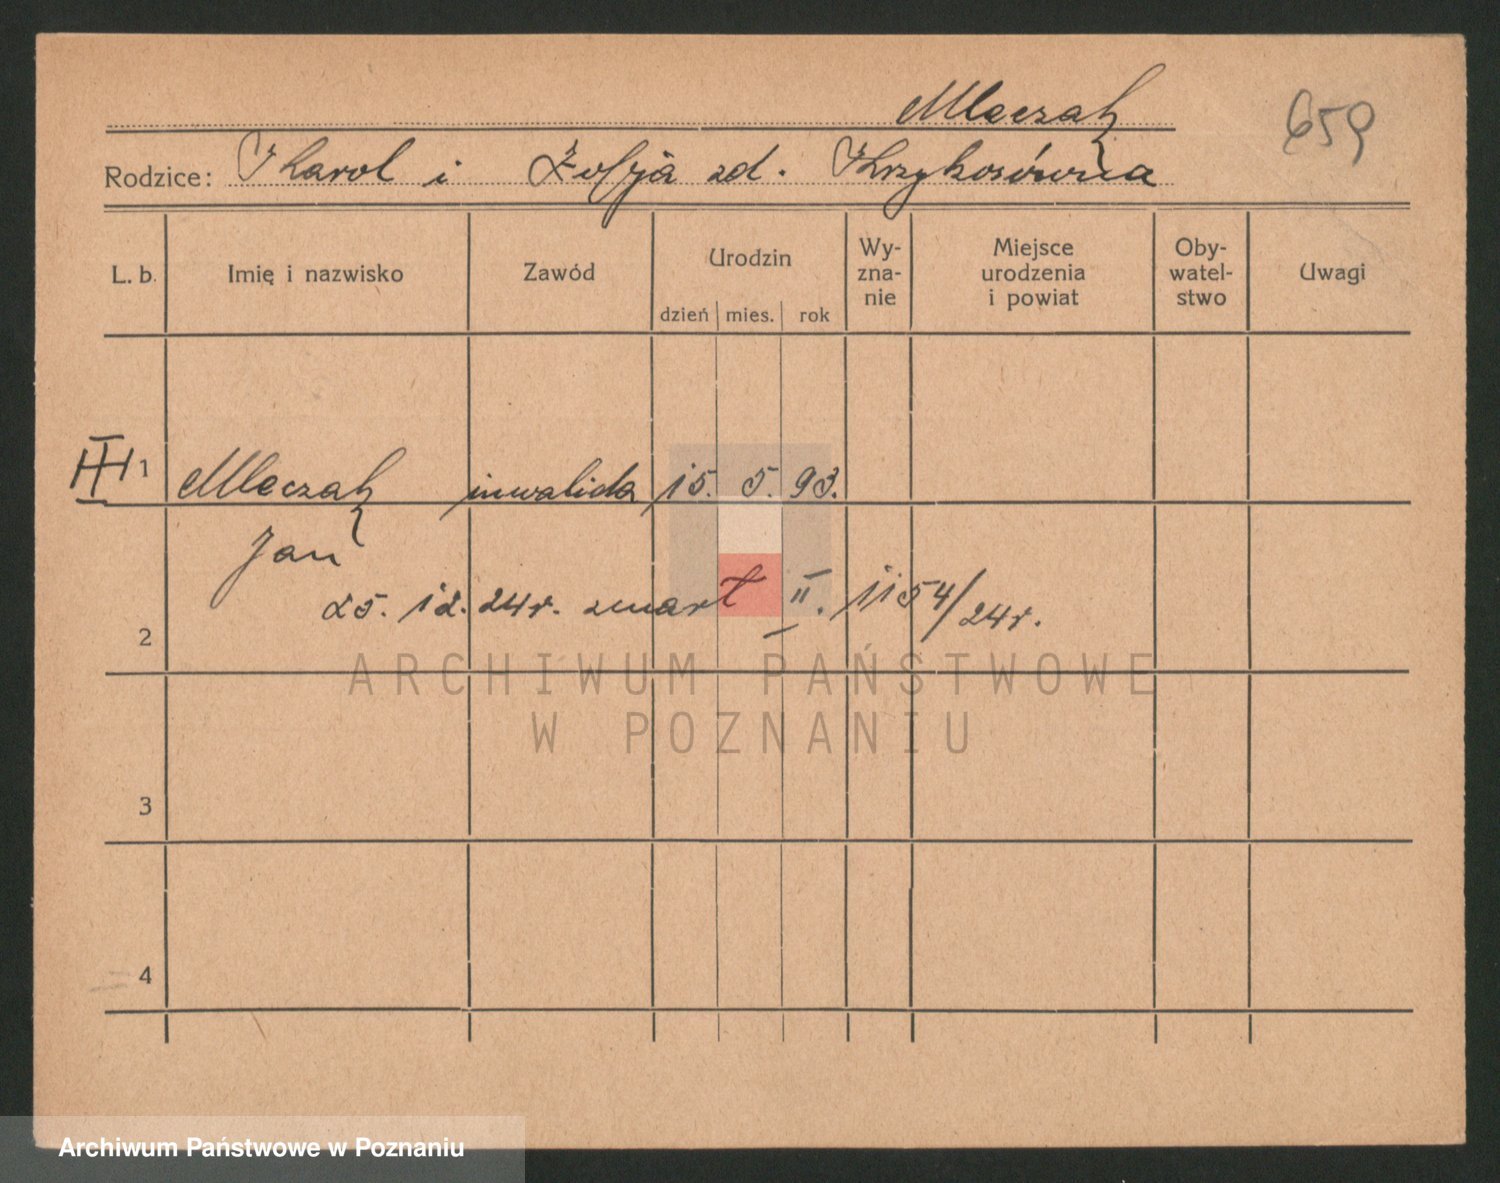 Mleczak
659
Rodzice: Karol i Zofja zd. Krzykosówna
L. b. Imię i nazwisko Zawód Urodzin dzień mies. rok Wy-zna-nie Miejsce urodzenia i powiat Oby-watel-stwo Uwagi
III 1 Mleczak inwalida 15. 5. 93.
Jan
25. 12. 24r. zmarł II. 1154/24r.
2
ARCHIWUM PAŃSTWOWE
W POZNANIU
3
4
Archiwum Państwowe w Poznaniu